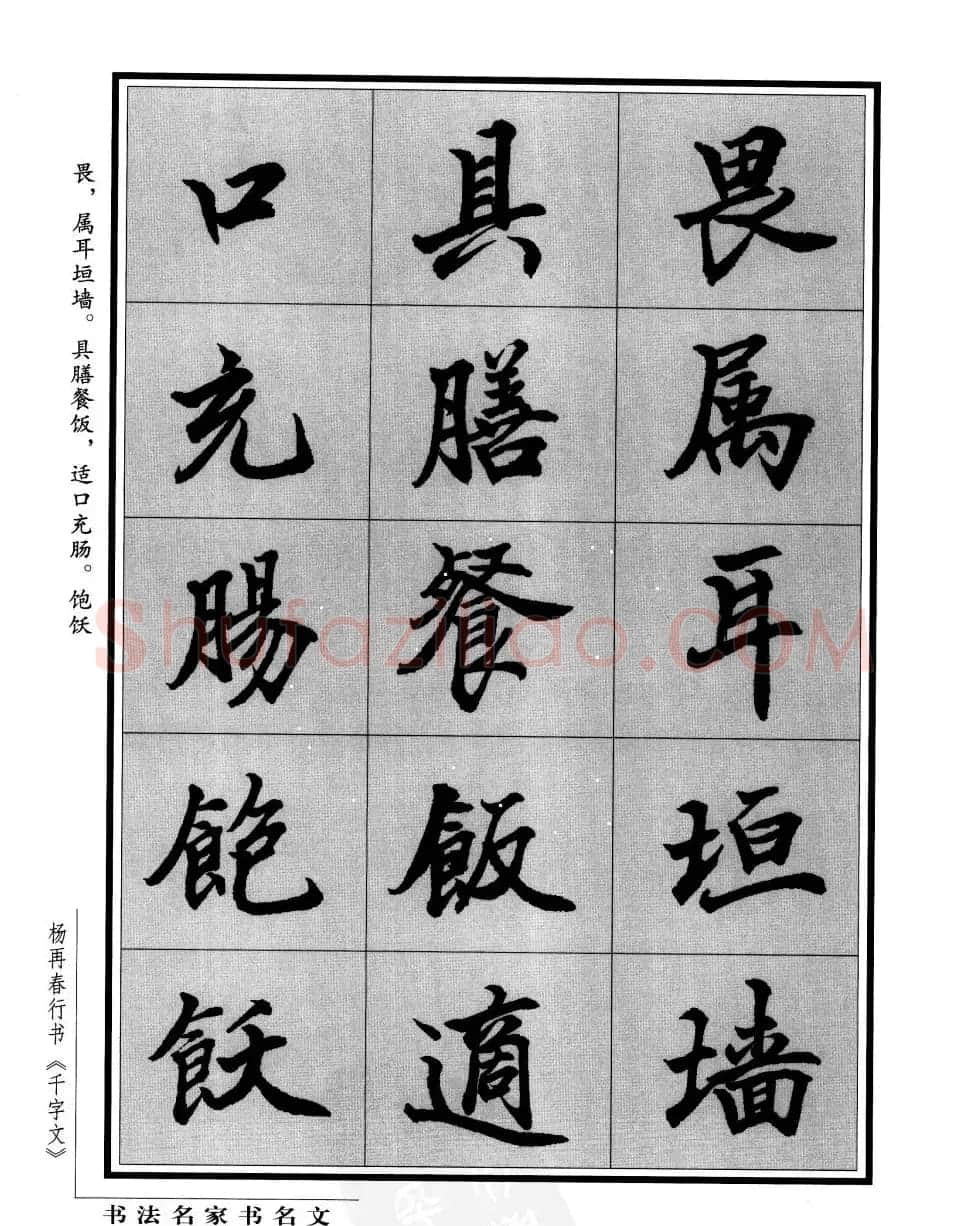 畏属耳垣墙
具膳餐飯適
口充腸飽飫
畏，属耳垣墙。具膳餐饭，适口充肠。饱饫
杨再春行书《千字文》
书法名家书名文
Shufaziliao.COM